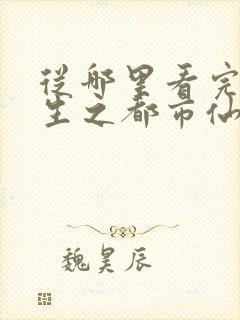 从哪里看完
生之都市仙
魏昊辰